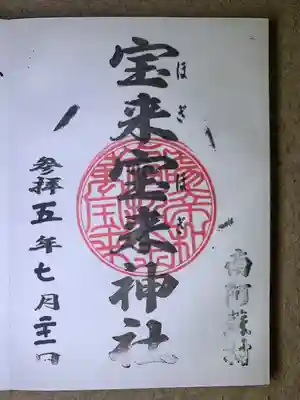 南阿蘇村
宝来宝来神社
ほぎ
ほぎ
参拝 五年七月二十一日